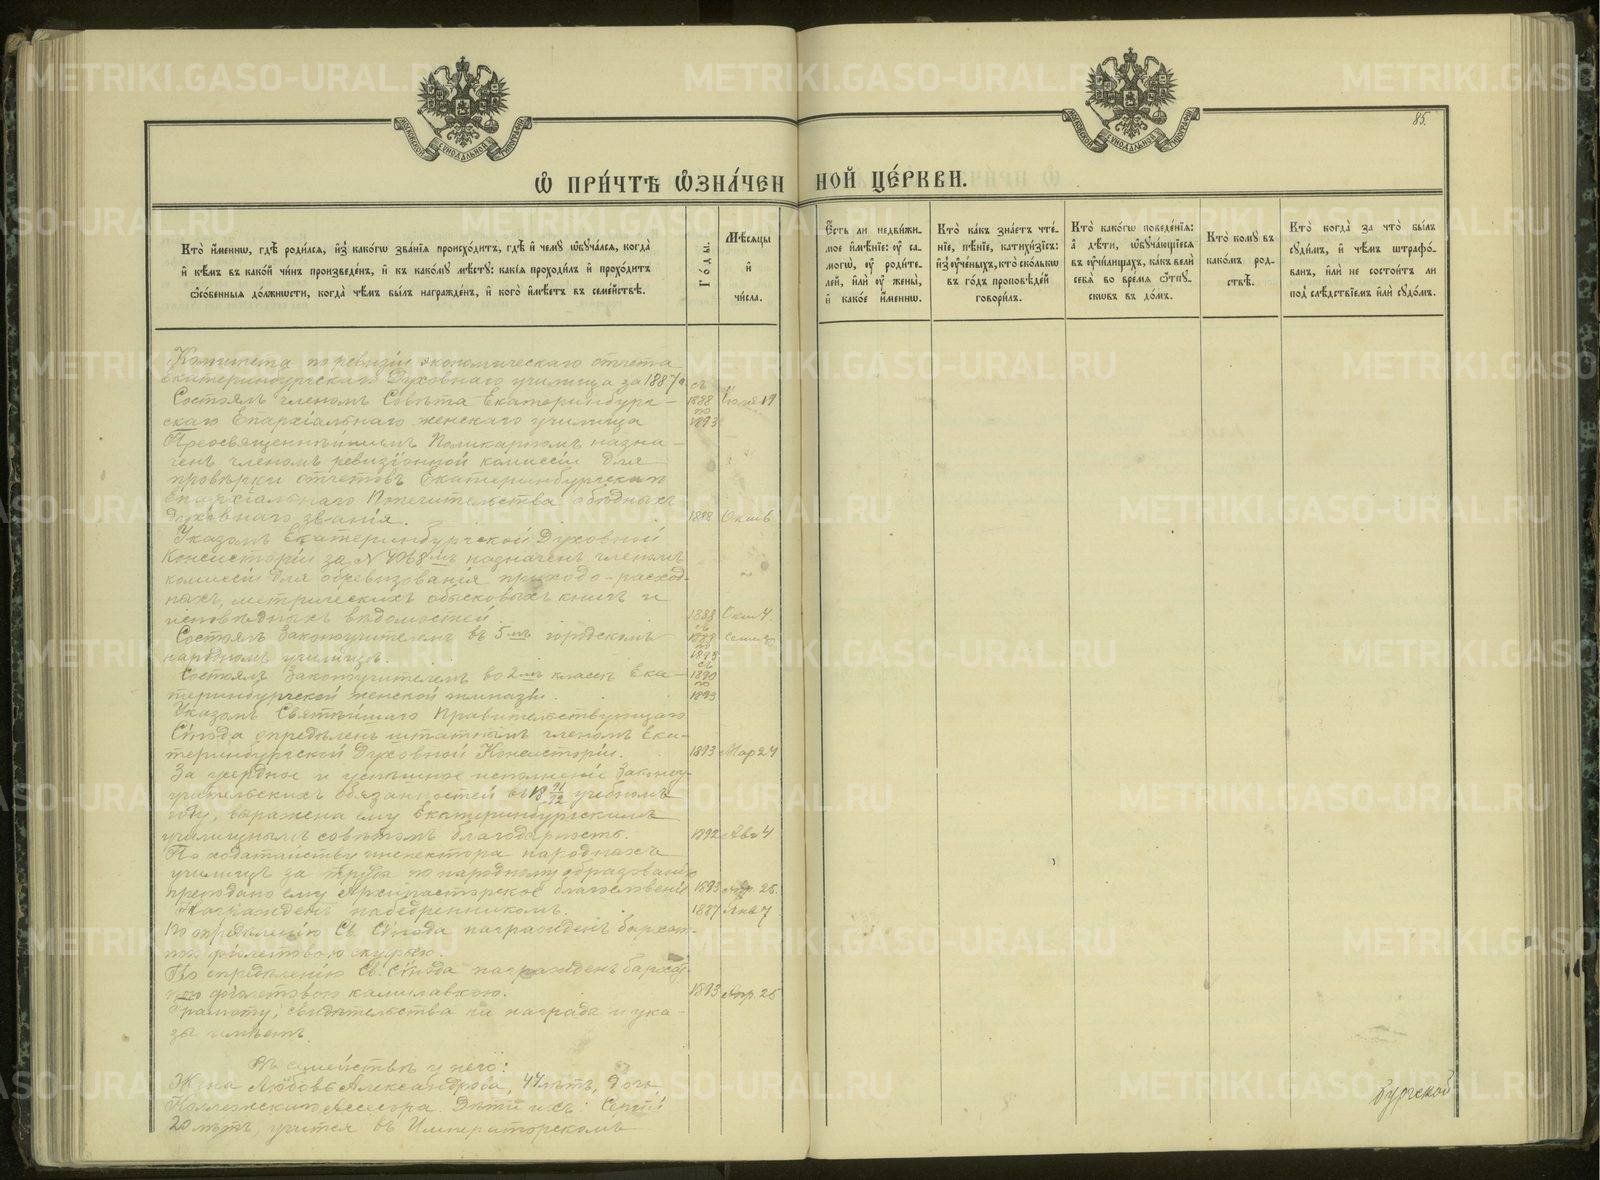 85.
Ѡ ПРИ́ЧТѢ Ѡ҆ЗНА́ЧЕННОЙ ЦЕ́РКВИ.
Кто̀ и҆́меннѡ, гдѣ̀ роди́лся, и҆з̾ како́гѡ зва́нїя происхо́дитъ, гдѣ̀ и҆ чемꙋ̀ ѡ҆бꙋча́лся, когда̀
и҆ кѣ́мъ въ како́й чи́нъ произведе́нъ, и҆ къ како́мꙋ мѣ́стꙋ: какі̑я проходи́лъ и҆ прохо́дитъ
ѻ҆со́бенныя до́лжности, когда̀ чѣ́мъ бы́лъ награжде́нъ, и҆ кого̀ и҆мѣ́етъ въ семе́йствѣ.
Го́ды.
Мѣ́сяцы
и҆
чи́сла.
Є҆́сть ли недви́жи-
мое и҆мѣ́нїе: ᲂу҆ са-
могѡ̀, ᲂу҆ роди́те-
лей, и҆лѝ ᲂу҆ жены̀,
и҆ како́е и҆́меннѡ.
Кто̀ ка́къ зна́етъ чте́-
нїе, пѣ́нїе, катихи́зїсъ:
и҆з̾ ᲂу҆че́ныхъ, кто̀ ско́лькѡ
въ го́дъ про́повѣдей
говори́лъ.
Кто̀ како́гѡ поведе́нїя:
а҆ дѣ́ти, ѡ҆бꙋча́ющїеся
въ ᲂу҆чи́лищахъ, ка́къ велѝ
себѧ̀ во вре́мя ѿпꙋ-
скѡвъ въ до́мъ.
Кто̀ комꙋ̀ въ
како́мъ род-
ствѣ̀.
Кто̀ когда̀ за что̀ бы́лъ
сꙋди́мъ, и҆ чѣ́мъ штрафо́-
ванъ, и҆лѝ не состои́тъ ли
под̾ слѣ́дствїемъ и҆лѝ сꙋдо́мъ.
Комитета по ревизіи экономическаго отчета
Екатеринбургскаго Духовнаго училища за 1887 г. съ
Состоялъ членомъ Совѣта Екатеринбург- 1888 19
скаго Епархіальнаго женскаго училища по 1893
Преосвященнѣйшимъ Поликарпомъ назна-
ченъ членомъ ревизіонной комиссіи для
провѣрки отчетовъ Екатеринбургскаго
Епархіальнаго Попечительства о бѣдныхъ
духовнаго званія. 1888 Окт 6
Указомъ Екатеринбургской Духовной
Консисторіи за N 4068мъ назначенъ членомъ
комиссіи для обревизованія приходо-расход-
ныхъ, метрическихъ обысковыхъ книгъ и
исповѣдныхъ вѣдомостей. 1888 Окт 4.
Состоялъ Законоучителемъ въ 5мъ городскомъ съ
народномъ училищѣ. по 1893
Состоялъ Законоучителемъ во 2мъ классѣ Ека- съ 1890
теринбургской женской гимназіи. по 1893
Указомъ Святѣйшаго Правительствующаго
Сѵнода опредѣленъ штатнымъ членомъ Ека-
теринбургской Духовной Консисторіи. 1893 Мар 24
За усердное и успѣшное исполненіе Законоу-
чительскихъ обязанностей въ 18 91/92 учебномъ
году, выражена ему Екатеринбургскимъ
училищнымъ совѣтомъ благодарность. 1892 Авг 4
По ходатайству инспектора народныхъ
училищъ за труды по народному образованію
преподано ему Архипастырское благословеніе 1893 Апр. 25.
Награжденъ набедренникомъ. 1887 Янв 7
По опредѣленію Св. Сѵнода награжденъ бархат-
ною фіолетовою скуфьею.
По опредѣленію Св. Сѵнода награжденъ бархат-
ною фіолетовою камилавкою. 1893 Апр. 25
Грамоту, свидѣтельства на награды и ука-
зы имѣетъ.
Въ семействѣ у него:
Жена Любовь Александрова, 47 лѣтъ, дочь
Коллежскаго Ассесора. Дѣти ихъ: Сергій
20 лѣтъ, учится въ Императорскомъ
бургской